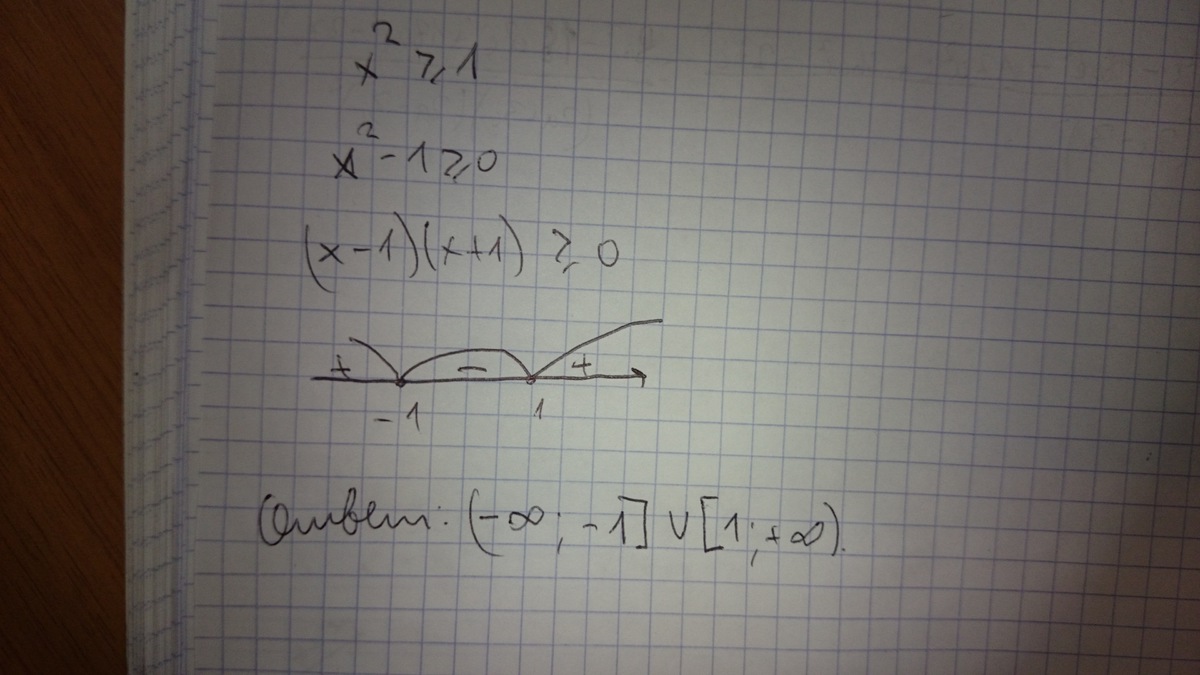 x² ⩾ 1
x² - 1 ⩾ 0
(x-1)(x+1) ⩾ 0
+ - +
-1 1
Ответ: (-∞; -1] ∪ [1; +∞).